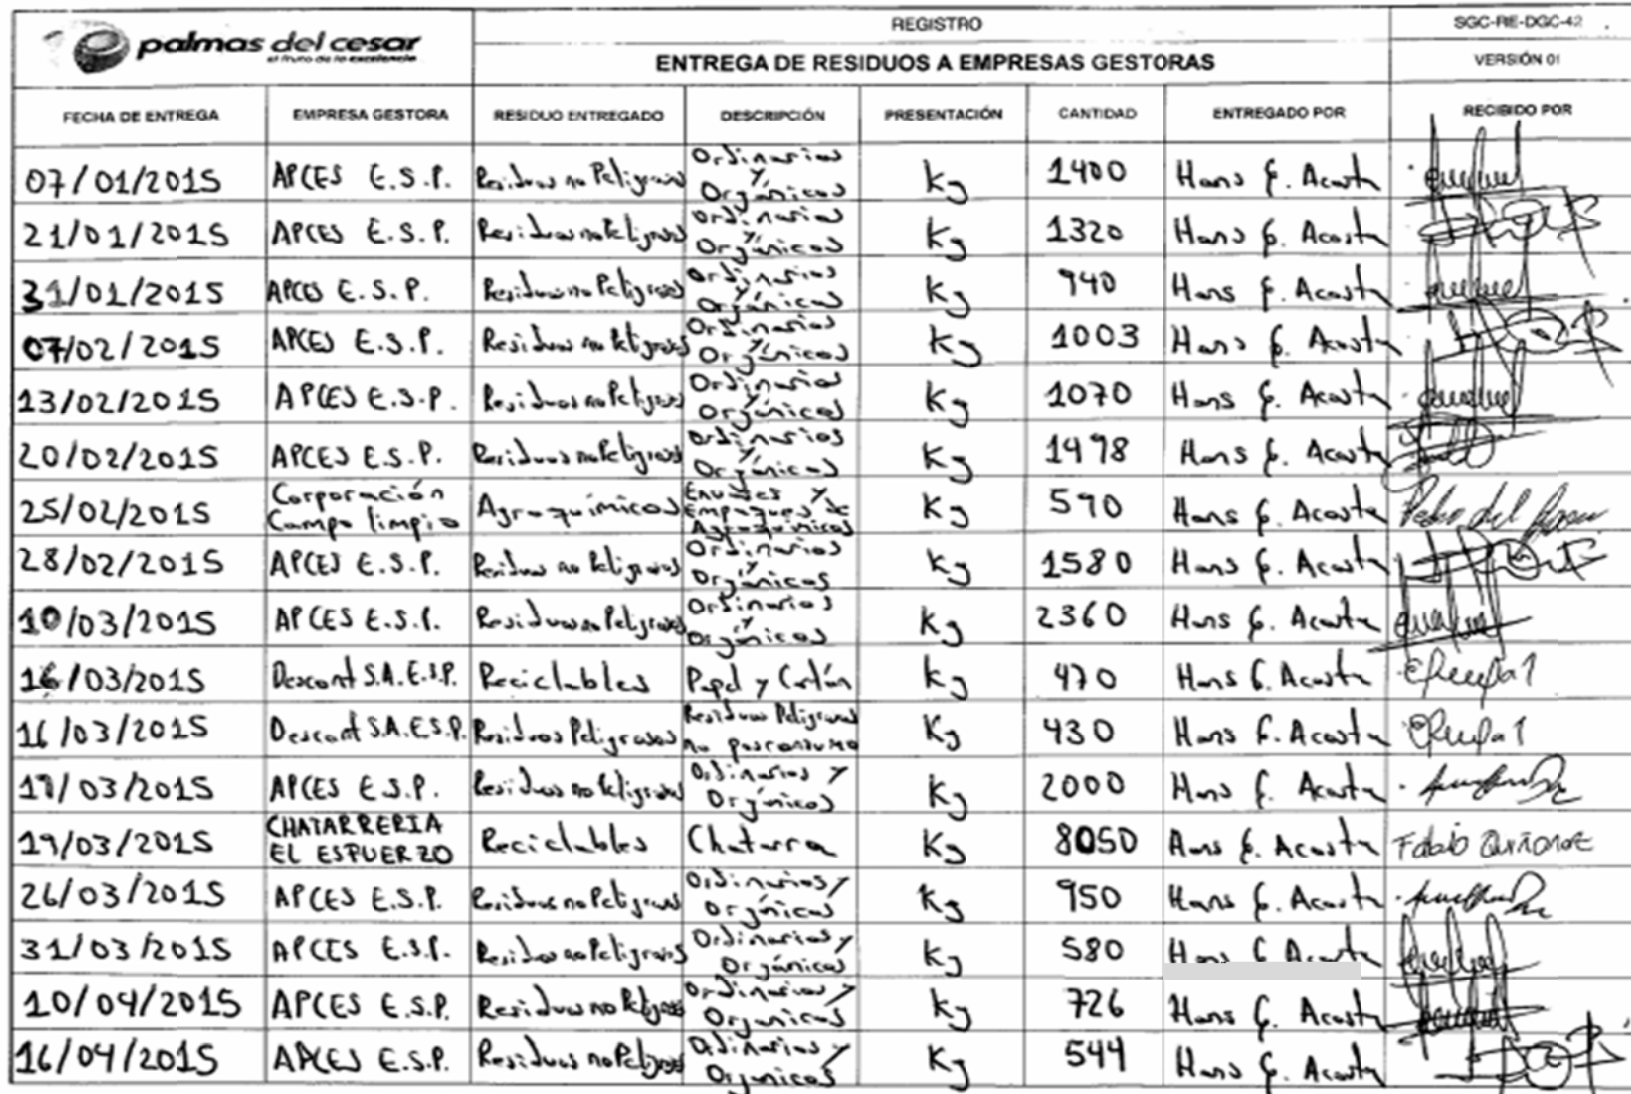 palmas del cesar
el fruto de la excelencia
REGISTRO
ENTREGA DE RESIDUOS A EMPRESAS GESTORAS
SGC-RE-DGC-42
VERSIÓN 01
FECHA DE ENTREGA EMPRESA GESTORA RESIDUO ENTREGADO DESCRIPCIÓN PRESENTACIÓN CANTIDAD ENTREGADO POR RECIBIDO POR
07/01/2015 APCES E.S.P. Residuos no Peligrosos Ordinarios y Orgánicos Kg 1400 Hans G. Acosta
21/01/2015 APCES E.S.P. Residuos no Peligrosos Ordinarios y Orgánicos Kg 1320 Hans G. Acosta
31/01/2015 APCES E.S.P. Residuos no Peligrosos Ordinarios y Orgánicos Kg 940 Hans G. Acosta
07/02/2015 APCES E.S.P. Residuos no Peligrosos Ordinarios y Orgánicos Kg 1003 Hans G. Acosta
13/02/2015 APCES E.S.P. Residuos no Peligrosos Ordinarios y Orgánicos Kg 1070 Hans G. Acosta
20/02/2015 APCES E.S.P. Residuos no Peligrosos Ordinarios y Orgánicos Kg 1498 Hans G. Acosta
25/02/2015 Corporación Campo limpio Agroquímicos Envases y Empaques de Agroquímicos Kg 590 Hans G. Acosta
28/02/2015 APCES E.S.P. Residuos no Peligrosos Ordinarios y Orgánicos Kg 1580 Hans G. Acosta
10/03/2015 APCES E.S.P. Residuos no Peligrosos Ordinarios y Orgánicos Kg 2360 Hans G. Acosta
16/03/2015 Descont S.A. E.S.P. Reciclables Papel y Cartón Kg 470 Hans G. Acosta
16/03/2015 Descont S.A. E.S.P. Residuos Peligrosos Residuos Peligrosos no posconsumo Kg 430 Hans G. Acosta
17/03/2015 APCES E.S.P. Residuos no Peligrosos Ordinarios y Orgánicos Kg 2000 Hans G. Acosta
19/03/2015 CHATARRERIA EL ESFUERZO Reciclables Chatarra Kg 8050 Hans G. Acosta Fabio Quiñonez
26/03/2015 APCES E.S.P. Residuos no Peligrosos Ordinarios y Orgánicos Kg 950 Hans G. Acosta
31/03/2015 APCES E.S.P. Residuos no Peligrosos Ordinarios y Orgánicos Kg 580 Hans G. Acosta
10/04/2015 APCES E.S.P. Residuos no Peligrosos Ordinarios y Orgánicos Kg 726 Hans G. Acosta
16/04/2015 APCES E.S.P. Residuos no Peligrosos Ordinarios y Orgánicos Kg 544 Hans G. Acosta